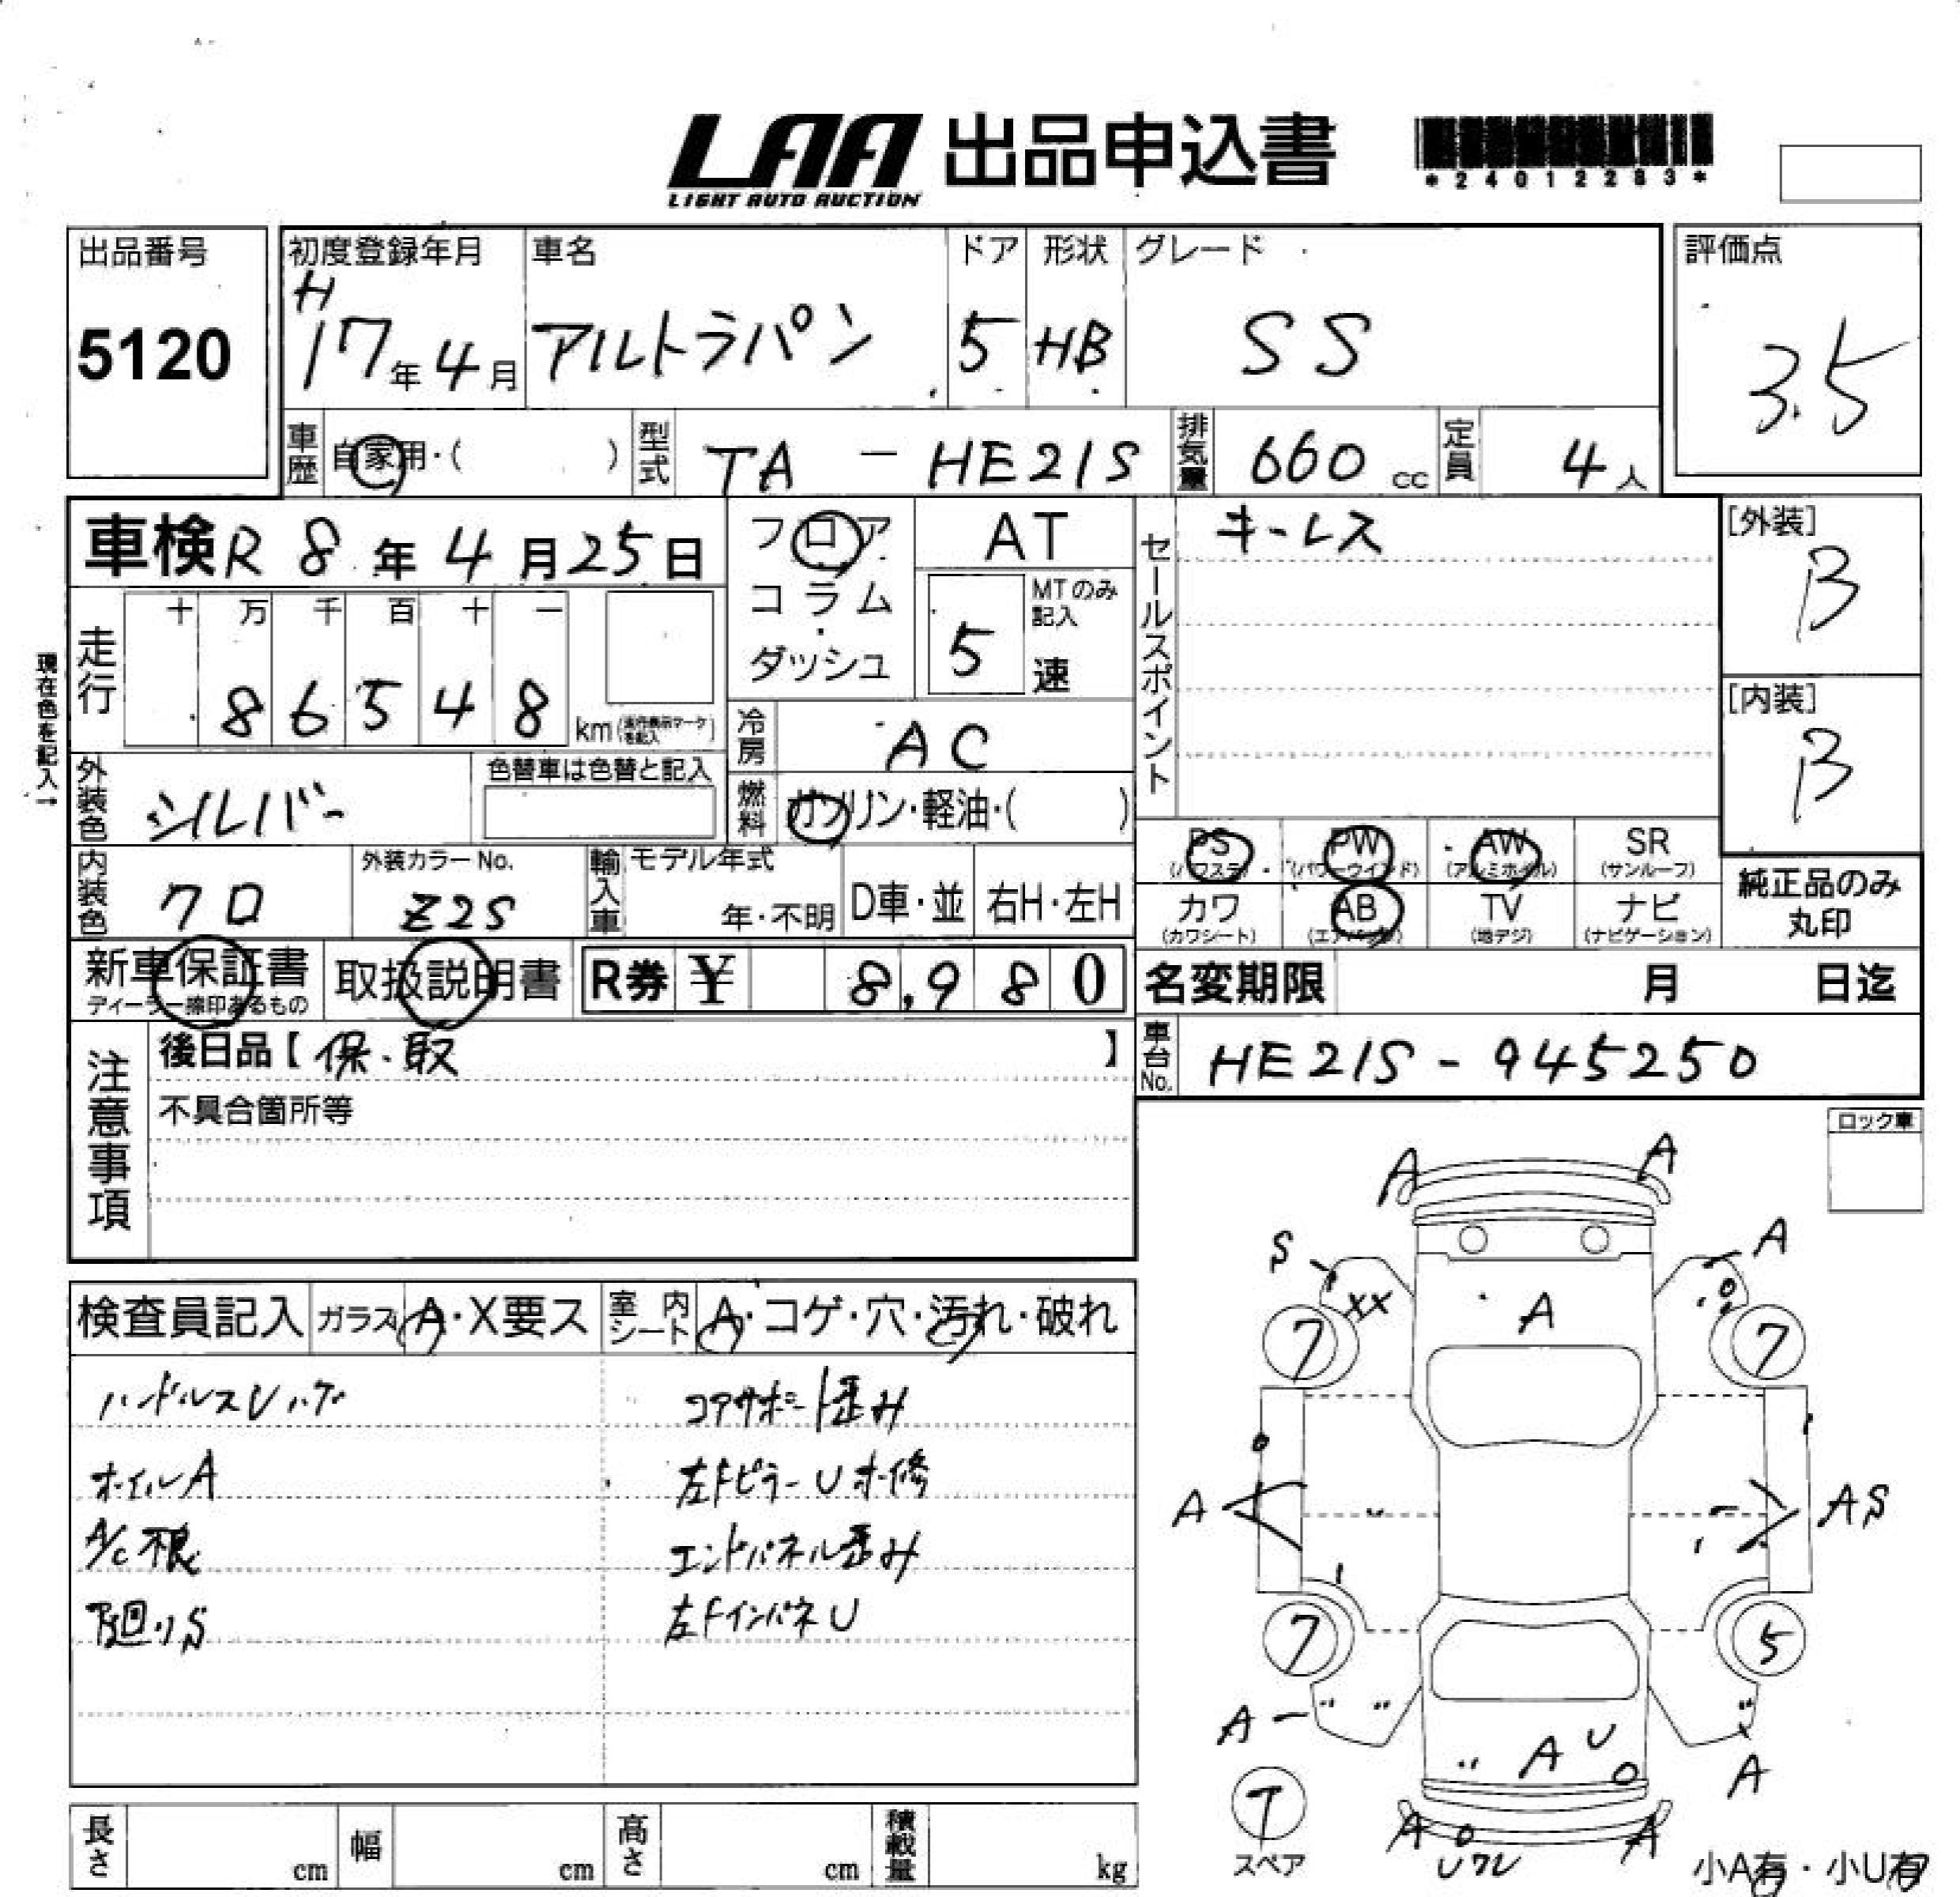 LAA 出品申込書
LIGHT AUTO AUCTION
*24012283*
出品番号
5120
初度登録年月 車名 ドア 形状 グレード 評価点
H17年4月 アルトラパン 5 HB SS 3.5
車歴 自家用・( ) 型式 TA - HE21S 排気量 660cc 定員 4人
車検 R8年4月25日
フロア
コラム
・
ダッシュ
AT
5速
MTのみ記入
現在色を記入→
走行 十 万 千 百 十 一
86548 km(走行表示マークを記入)
冷房 AC
燃料 ガソリン・軽油・( )
外装色 シルバー
色替車は色替と記入
内装色 クロ
外装カラーNo. Z2S
輸入車 モデル年式
年・不明 D車・並 右H・左H
セールスポイント キーレス
[外装]
B
[内装]
B
PS (パワステ) PW (パワーウインド) AW (アルミホイル) SR (サンルーフ)
カワ (カワシート) AB (エアバッグ) TV (地デジ) ナビ (ナビゲーション)
純正品のみ
丸印
新車保証書
ディーラー捺印あるもの
取扱説明書
R券 ¥ 8,980
名変期限 月 日迄
車台No. HE21S-945250
注意事項
後日品【保.取 】
不具合箇所等
ロック車
検査員記入 ガラス A・X要ス 室内シート A・コゲ・穴・汚れ・破れ
ハンドルスレハゲ コアサポート歪み
ホイルA 左Fピラー U ホ修
A/C不良 エンドパネル歪み
下廻りS 左FインパネU
A A
S A
XX A
7 7
A AS
7 5
A A U A
T
スペア
A A
Uワレ
小A有・小U有
長さ cm 幅 cm 高さ cm 積載量 kg